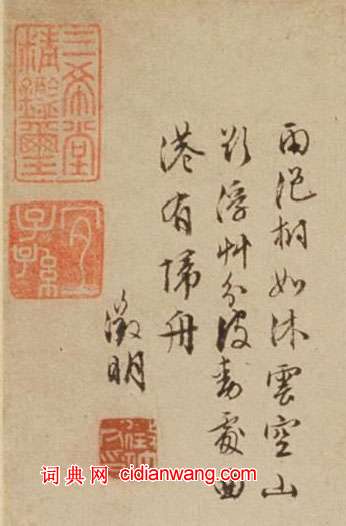 雨浥樹如沐雲空山
欲浮艸分波動處曲
港有歸舟
徵明
三希堂
精鑑璽
宜
子孫
词典网 cidianwang.com